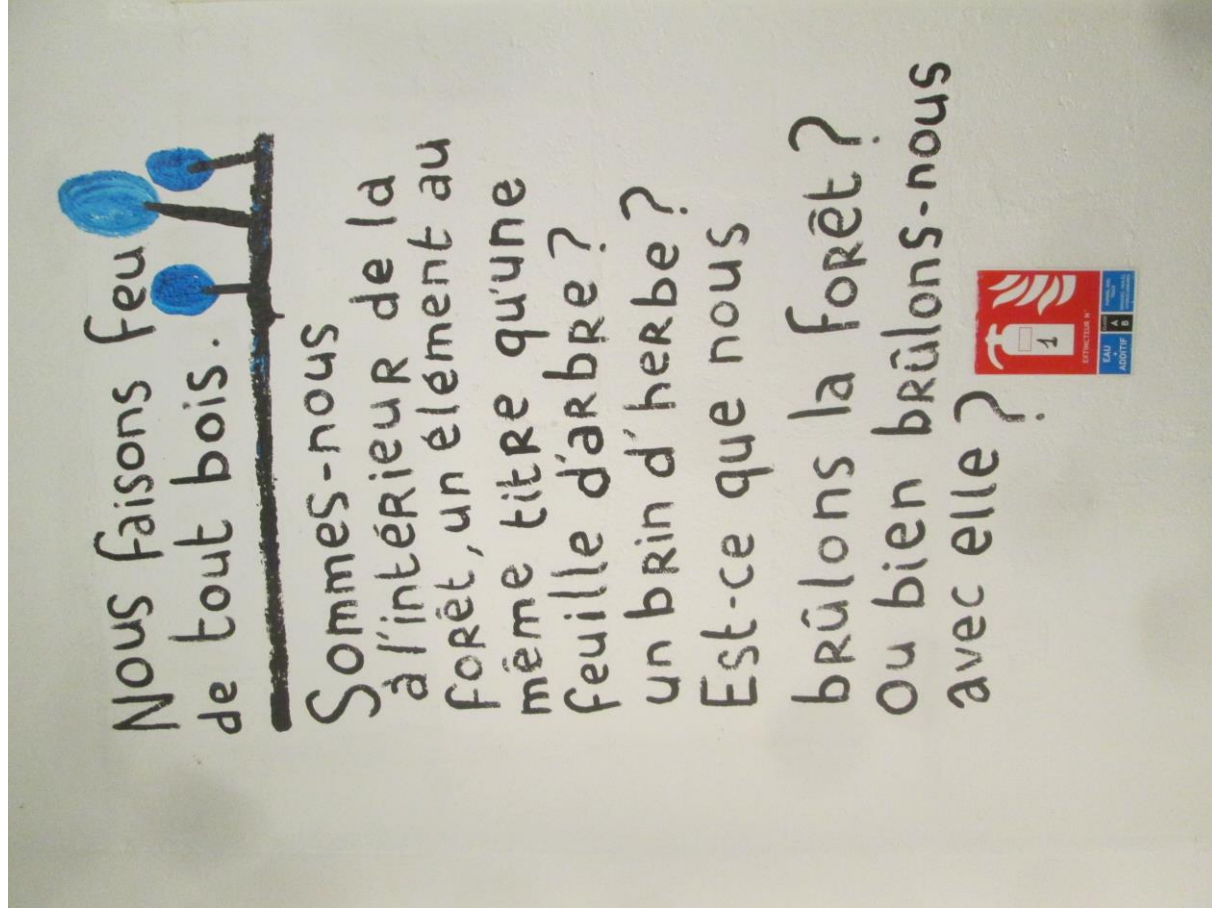 Nous faisons feu
de tout bois.
Sommes-nous
à l'intérieur de la
forêt, un élément au
même titre qu'une
feuille d'arbre?
un brin d'herbe?
Est-ce que nous
brûlons la forêt?
ou bien brûlons-nous
avec elle?
1
EXTINCTEUR N°
EAU
+
ADDITIF
A
B